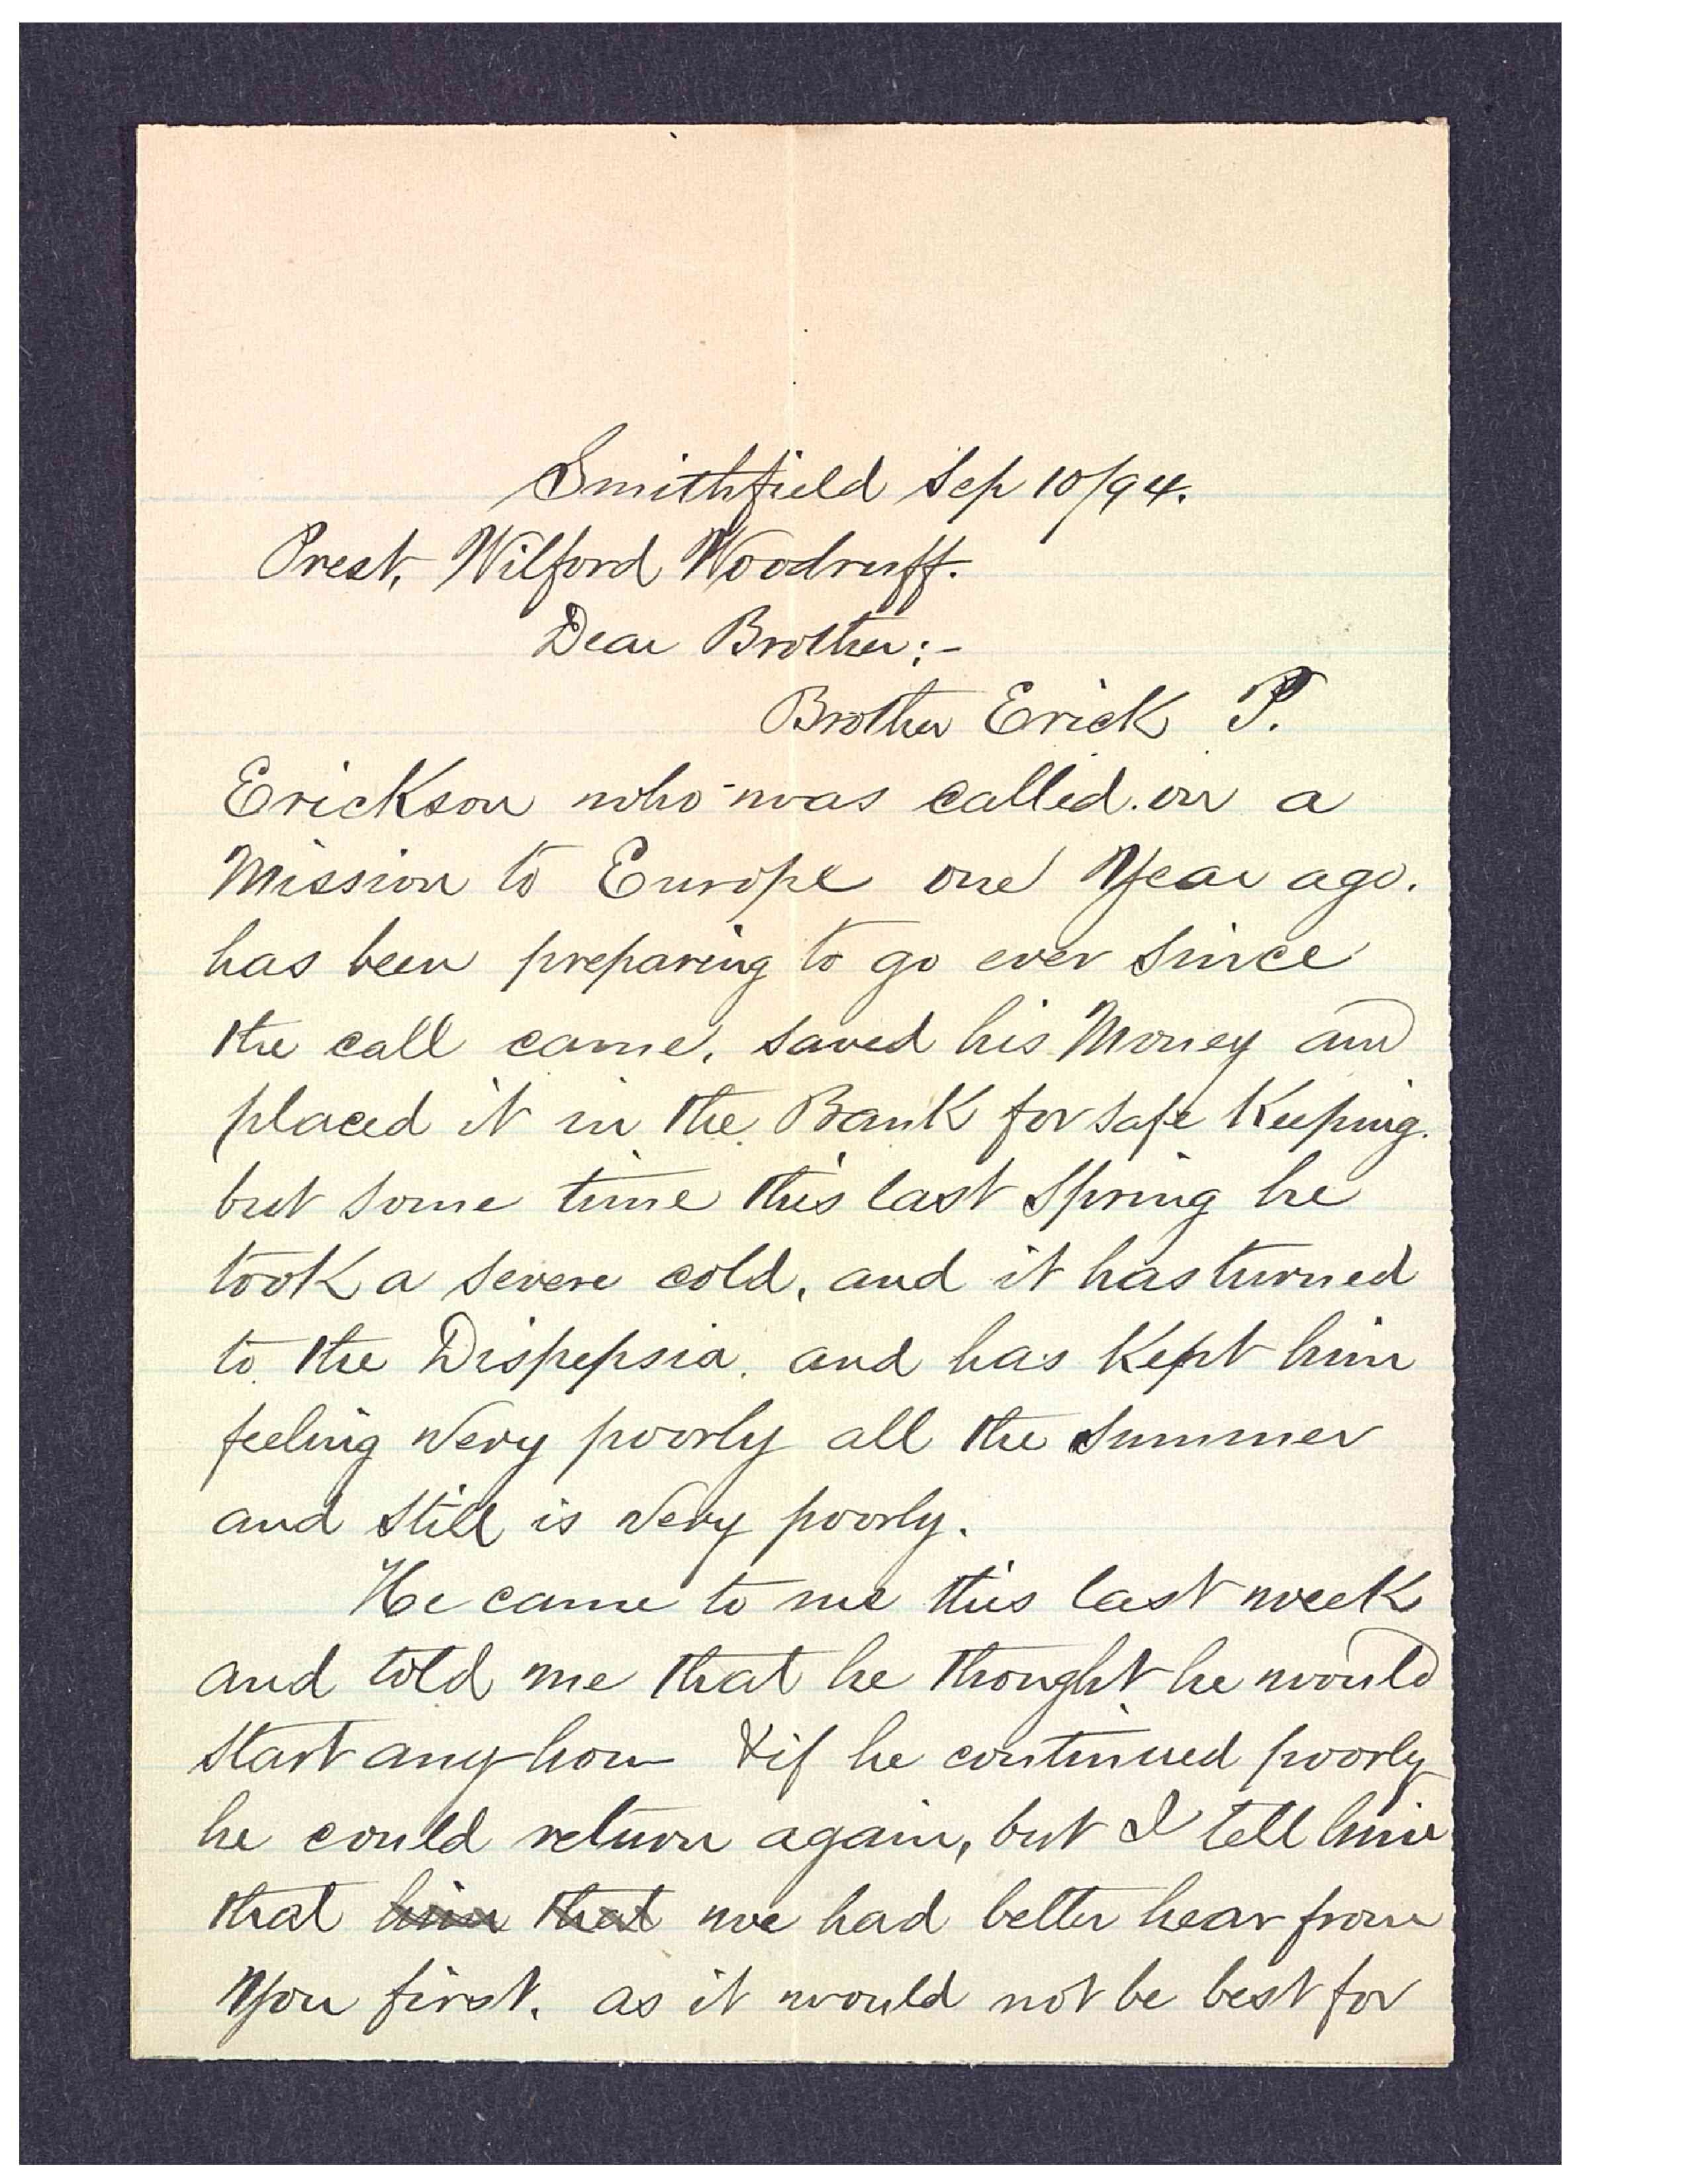 Smithfield Sep 10/94.
Prest. Wilford Woodruff.
Dear Brother:-
Brother Erick P.
Erickson who was called on a
Mission to Europe one Year ago.
has been preparing to go ever since
the call came, saved his Money and
placed it in the Bank for safe Keeping.
but some time this last Spring he
took a severe cold, and it has turned
to the Dispepsia. and has Kept him
feeling very poorly all the summer
and still is very poorly.
He came to me this last week
and told me that he thought he would
start any how & if he continued poorly
he could return again, but I tell him
that him that we had better hear from
You first. as it would not be best for